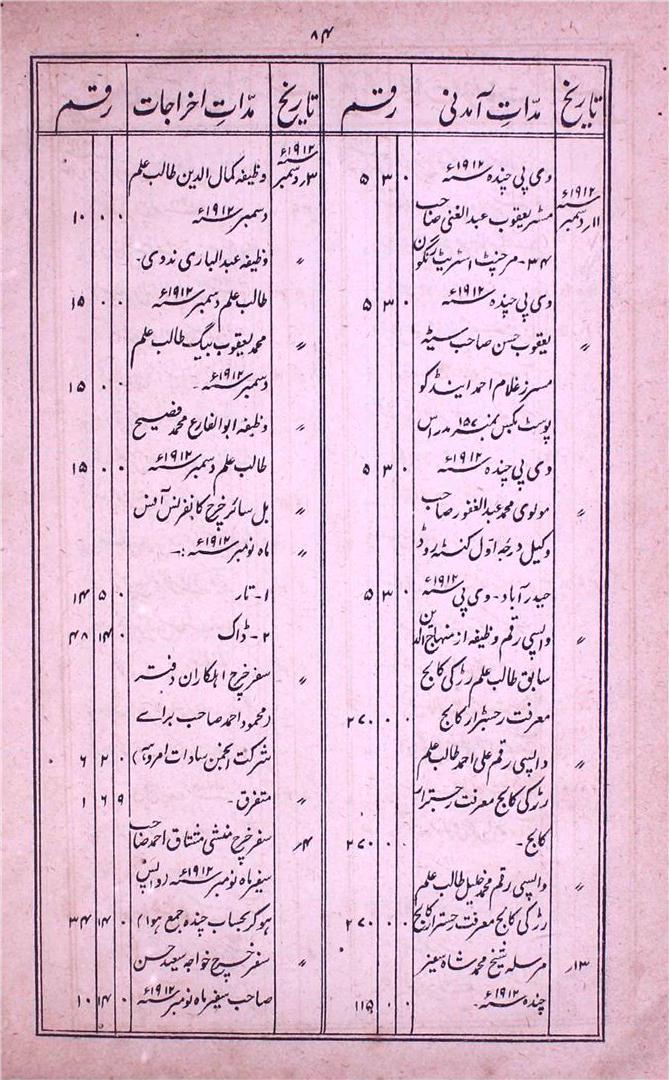 ۸۴
تاریخ | مدّاتِ آمدنی | رقم | تاریخ | مدّاتِ اخراجات | رقم
وی پی چندہ سنہ ۱۹۱۲ء | ۰ ۳ ۵
۱۱ر دسمبر سنہ ۱۹۱۲ء | مسٹر یعقوب عبدالغنی صاحب
۳۴- مرچنٹ اسٹریٹ رنگون
وی پی چندہ سنہ ۱۹۱۲ء | ۰ ۳ ۵
〃 | یعقوب حسن صاحب سیٹھ
مسرز غلام احمد اینڈ کو
پوسٹ بکس نمبر ۱۵۷ مدراس
وی پی چندہ سنہ ۱۹۱۲ء | ۰ ۳ ۵
〃 | مولوی محمد عبدالغفور صاحب
وکیل درجہ اول کنٹہ روڈ
حیدرآباد- وی پی سنہ ۱۹۱۲ء | ۰ ۳ ۵
〃 | واپسی رقم وظیفہ از منہاج الدین
سابق طالب علم رڑکی کالج
معرفت رجسٹرار کالج | ۰ ۰ ۲۷۰
〃 | واپسی رقم علی احمد طالب علم
رڑکی کالج معرفت رجسٹرار
کالج - | ۰ ۰ ۲۷۰
〃 | واپسی رقم محمد خلیل طالب علم
رڑکی کالج معرفت رجسٹرار کالج | ۰ ۰ ۲۷۰
۱۳ر | مرسلہ شیخ محمد شاہ سفیر
چندہ سنہ ۱۹۱۲ء - | ۰ ۰ ۱۱۵
۳ر دسمبر سنہ ۱۹۱۲ء | وظیفہ کمال الدین طالب علم
دسمبر سنہ ۱۹۱۲ء | ۰ ۰ ۱۰
〃 | وظیفہ عبدالباری ندوی -
طالب علم دسمبر سنہ ۱۹۱۲ء | ۰ ۰ ۱۵
〃 | محمد یعقوب بیگ طالب علم
دسمبر سنہ ۱۹۱۲ء - | ۰ ۰ ۱۵
〃 | وظیفہ ابو الفارع محمد فصیح
طالب علم دسمبر سنہ ۱۹۱۲ء | ۰ ۰ ۱۵
〃 | بل سائر خرچ کانفرنس آفس
〃 | ماہ نومبر سنہ ۱۹۱۲ء :-
۱- تار | ۰ ۵ ۱۴
۲- ڈاک | ۰ ۱۴ ۴۸
〃 | سفر خرچ اہلکاران دفتر
(محمود احمد صاحب برائے
شرکت انجمن سادات امروہہ) | ۰ ۲ ۶
〃 | متفرق - | ۹ ۶ ۱
۴ر | سفر خرچ منشی مشتاق احمد صاحب
سفیر ماہ نومبر سنہ ۱۹۱۲ء (واپس
ہوکر بحساب چندہ جمع ہوا) | ۰ ۱۴ ۳۴
〃 | سفر خرچ خواجہ سعید حسن
صاحب سفیر ماہ نومبر سنہ ۱۹۱۲ء | ۰ ۱۴ ۱۰